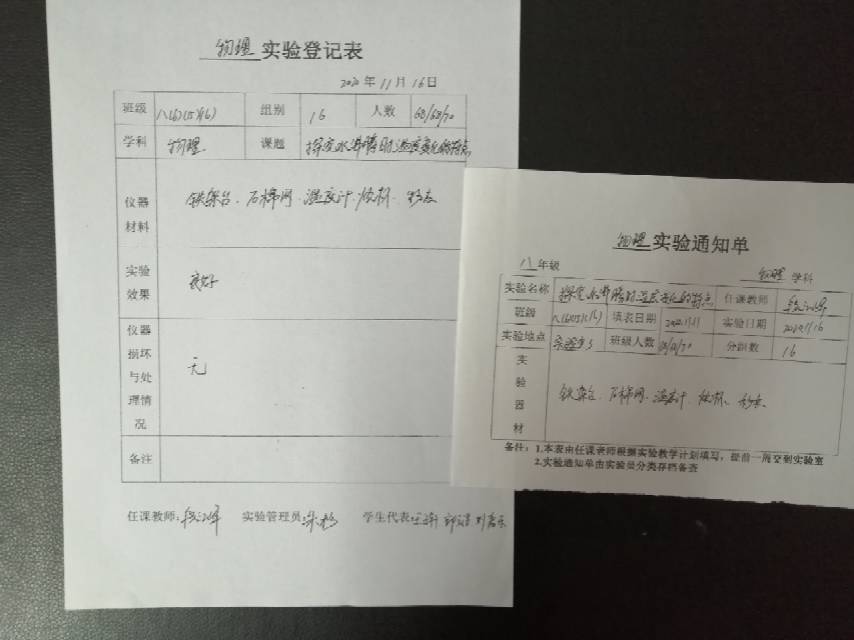 物理 实验登记表
2020年11月16日
班级 八(4)(5)(6) 组别 16 人数 68/68/70
学科 物理 课题 探究水沸腾时温度变化的特点
仪器材料 铁架台、石棉网、温度计、烧杯、秒表
实验效果 良好
仪器损坏与处理情况 无
备注
任课教师: 实验管理员: 学生代表:
物理 实验通知单
八年级 物理 学科
实验名称 探究水沸腾时温度变化的特点 任课教师
班级 填表日期 2020.11.11 实验日期 2020.11.16
实验地点 实验室3 班级人数 68/68/70 分组数 16
实验器材 铁架台、石棉网、温度计、烧杯、秒表
备注: 1.本表由任课老师根据实验教学计划填写,提前一周交到实验室
2.实验通知单由实验员分类存档备查